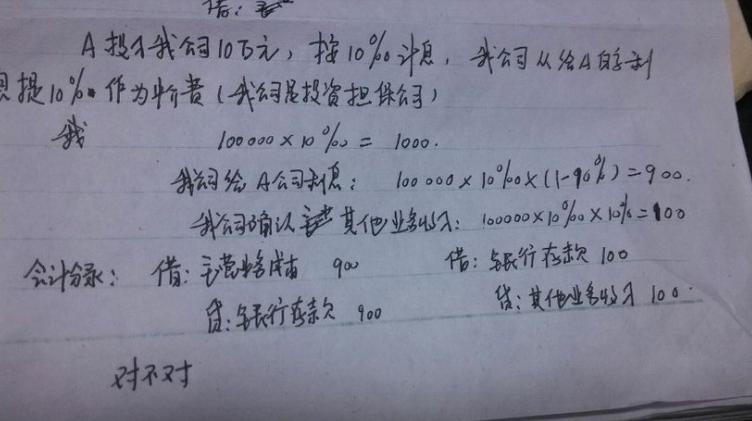 借：
A投入我公司10万元，按10‰计息，我公司从给A的利
息提10%作为中介费（我公司是投资担保公司）
我 100000×10‰=1000.
我公司给A公司利息：100000×10‰×(1-90%)=900.
我公司确认其他业务收入：100000×10‰×10%=100
会计分录：借：主营业务成本 900 借：银行存款 100
贷：银行存款 900 贷：其他业务收入 100.
对不对